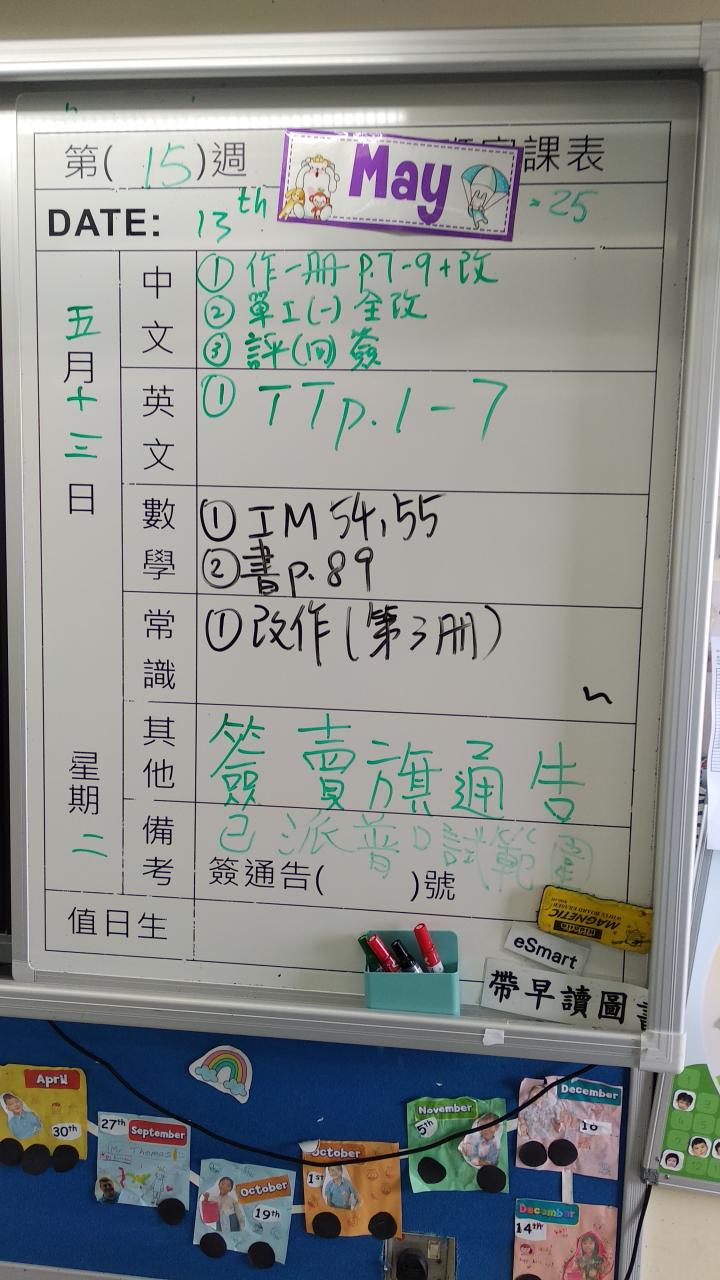 第( 15 )週
May
課表
DATE: 13th
25
五月十三日
星期二
中文
① 作一册 P.7-9+改
② 單工(一) 全改
③ 評(四) 簽
英文
① TTp.1-7
數學
① IM 54,55
② 書p.89
常識
① 改作(第3册)
其他
簽 賣旗通告
備考
已派普口試範圍
簽通告( )號
值日生
MAGNETIC
WHITE BOARD ERASER
eSmart
帶早讀圖
April
30th
27th
September
Mr. Thomas
October
19th
October
1st
November
5th
December
16
December
14th